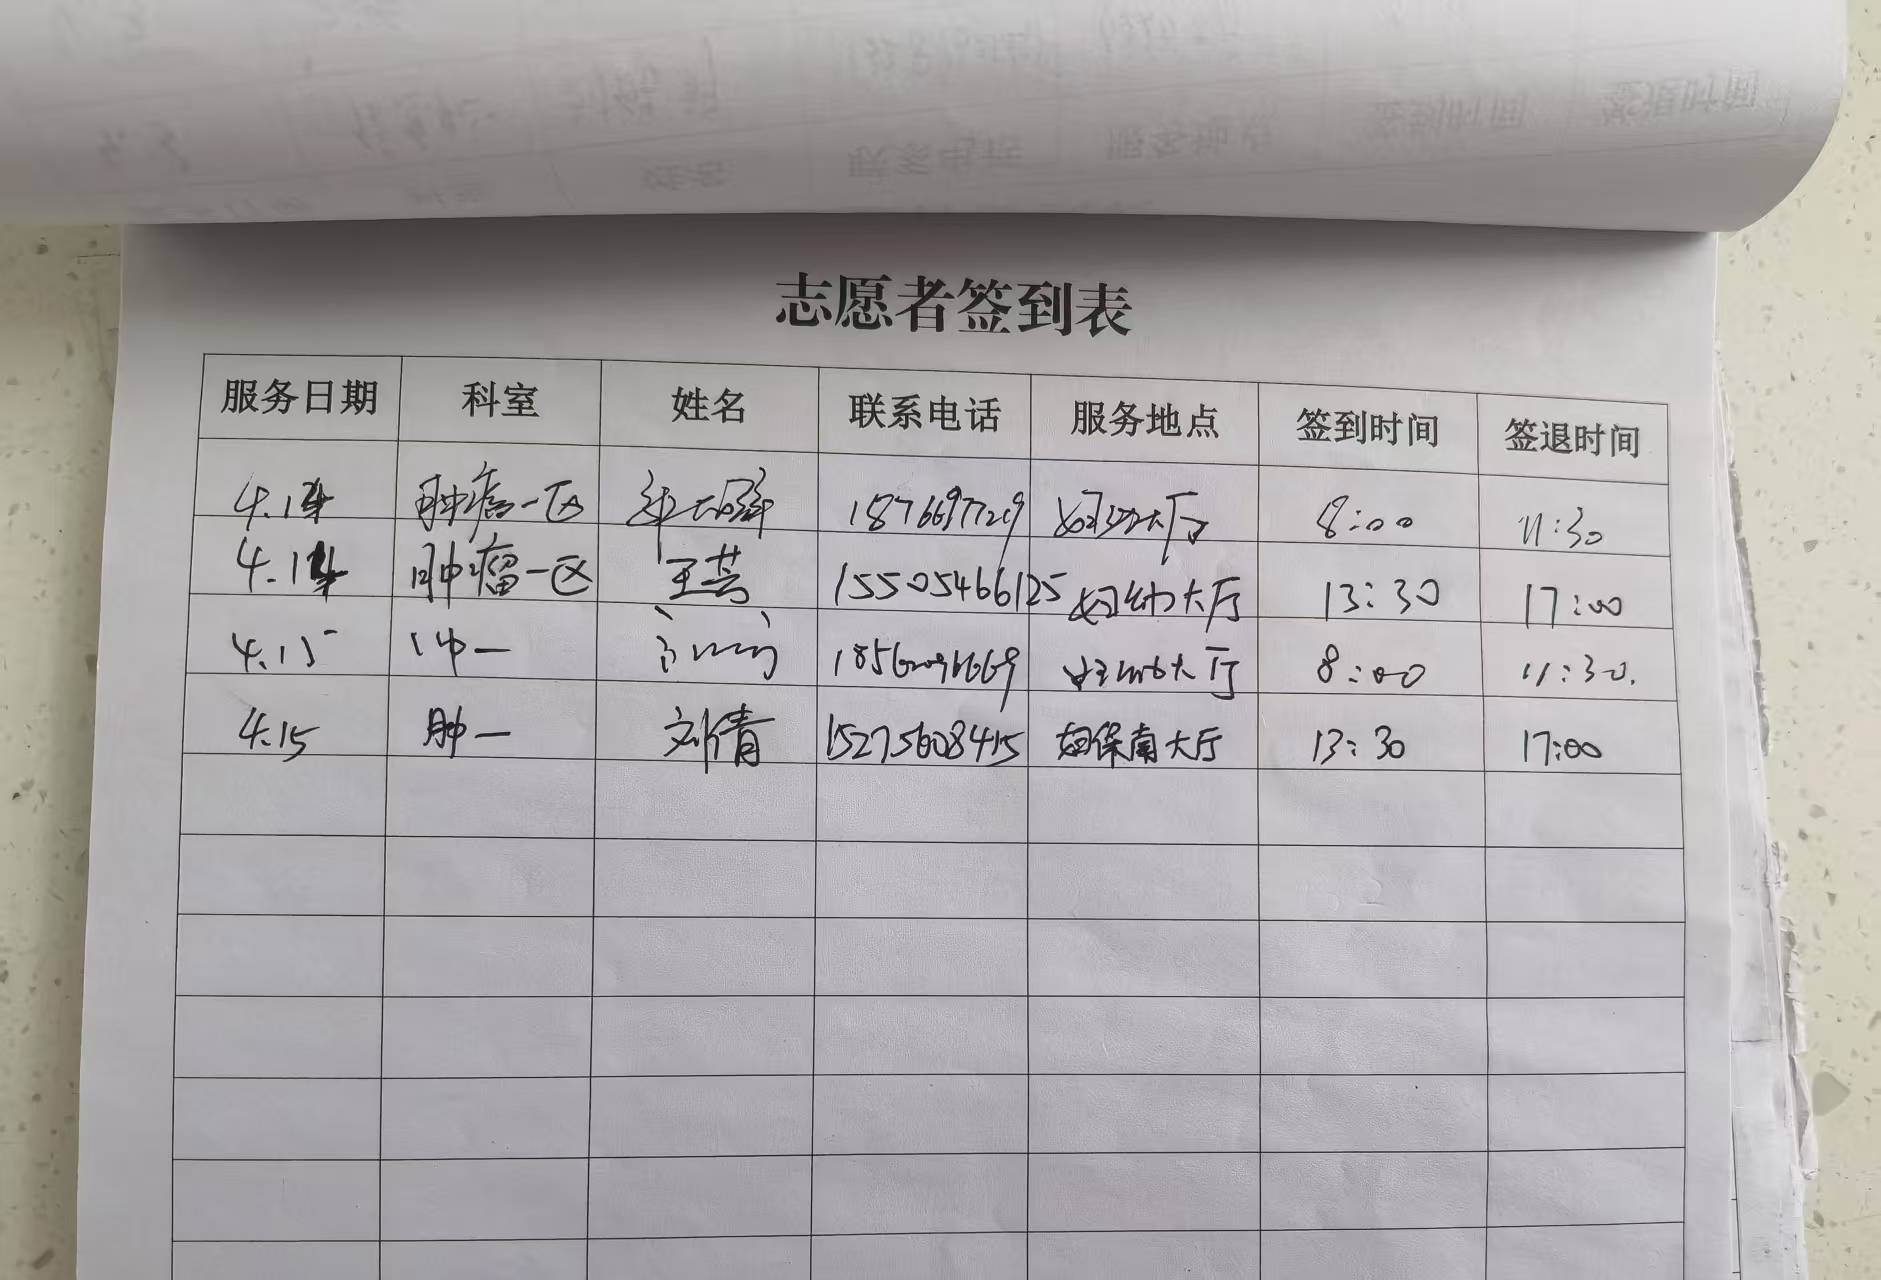 志愿者签到表
服务日期 科室 姓名 联系电话 服务地点 签到时间 签退时间
4.14 肿瘤一区 妇幼大厅 8:00 11:30
4.14 肿瘤一区 王芸 15505466125 妇幼大厅 13:30 17:00
4.15 肿一 妇幼大厅 8:00 11:30.
4.15 肿一 刘倩 15275608415 妇保南大厅 13:30 17:00